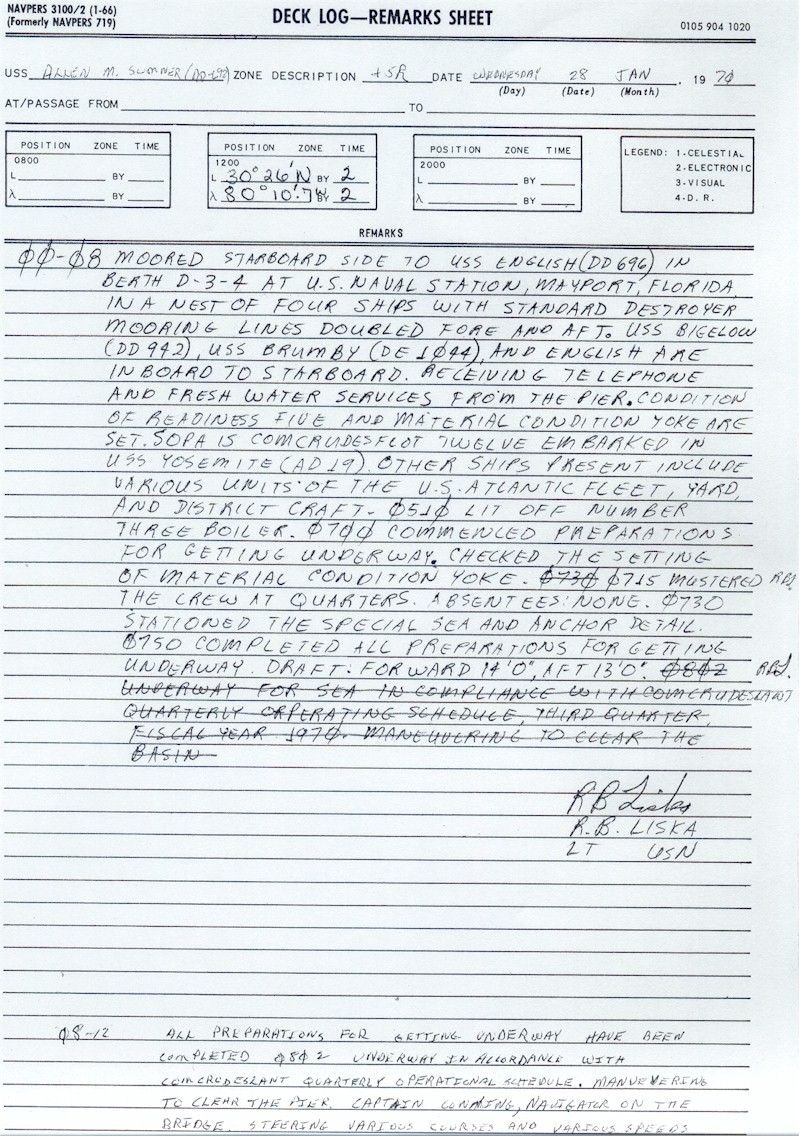 NAVPERS 3100/2 (1-66)
(Formerly NAVPERS 719)
DECK LOG—REMARKS SHEET
0105 904 1020
USS ALLEN M. SUMNER (DD-692) ZONE DESCRIPTION +5R DATE WEDNESDAY 28 JAN . 19 70
(Day) (Date) (Month)
AT/PASSAGE FROM TO
POSITION ZONE TIME
0800
L BY
λ BY
POSITION ZONE TIME
1200
L 30°26'N BY 2
λ 80°10.'7W BY 2
POSITION ZONE TIME
2000
L BY
λ BY
LEGEND: 1-CELESTIAL
2-ELECTRONIC
3-VISUAL
4-D. R.
REMARKS
ØØ-Ø8 MOORED STARBOARD SIDE TO USS ENGLISH (DD 696) IN
BERTH D-3-4 AT U.S. NAVAL STATION, MAYPORT, FLORIDA,
IN A NEST OF FOUR SHIPS WITH STANDARD DESTROYER
MOORING LINES DOUBLED FORE AND AFT. USS BIGELOW
(DD 942), USS BRUMBY (DE 1Ø44), AND ENGLISH ARE
INBOARD TO STARBOARD. RECEIVING TELEPHONE
AND FRESH WATER SERVICES FROM THE PIER. CONDITION
OF READINESS FIVE AND MATERIAL CONDITION YOKE ARE
SET. SOPA IS COMCRUDESFLOT TWELVE EMBARKED IN
USS YOSEMITE (AD 19). OTHER SHIPS PRESENT INCLUDE
VARIOUS UNITS OF THE U.S. ATLANTIC FLEET, YARD,
AND DISTRICT CRAFT. Ø51Ø LIT OFF NUMBER
THREE BOILER. Ø7ØØ COMMENCED PREPARATIONS
FOR GETTING UNDERWAY. CHECKED THE SETTING
OF MATERIAL CONDITION YOKE. Ø73Ø Ø715 MUSTERED RBL
THE CREW AT QUARTERS. ABSENTEES: NONE. Ø730
STATIONED THE SPECIAL SEA AND ANCHOR DETAIL.
Ø750 COMPLETED ALL PREPARATIONS FOR GETTING
UNDERWAY. DRAFT: FORWARD 14'0", AFT 13'0". Ø8Ø2 RBL.
UNDERWAY FOR SEA IN COMPLIANCE WITH COMCRUDESLANT
QUARTERLY OPERATING SCHEDULE, THIRD QUARTER,
FISCAL YEAR 1970. MANEUVERING TO CLEAR THE
BASIN
RB Liska
R.B. LISKA
LT USN
Ø8-12 ALL PREPARATIONS FOR GETTING UNDERWAY HAVE BEEN
COMPLETED Ø8Ø2 UNDERWAY IN ACCORDANCE WITH
COMCRUDESLANT QUARTERLY OPERATIONAL SCHEDULE. MANUEVERING
TO CLEAR THE PIER. CAPTAIN CONNING, NAVIGATOR ON THE
BRIDGE. STEERING VARIOUS COURSES AND VARIOUS SPEEDS